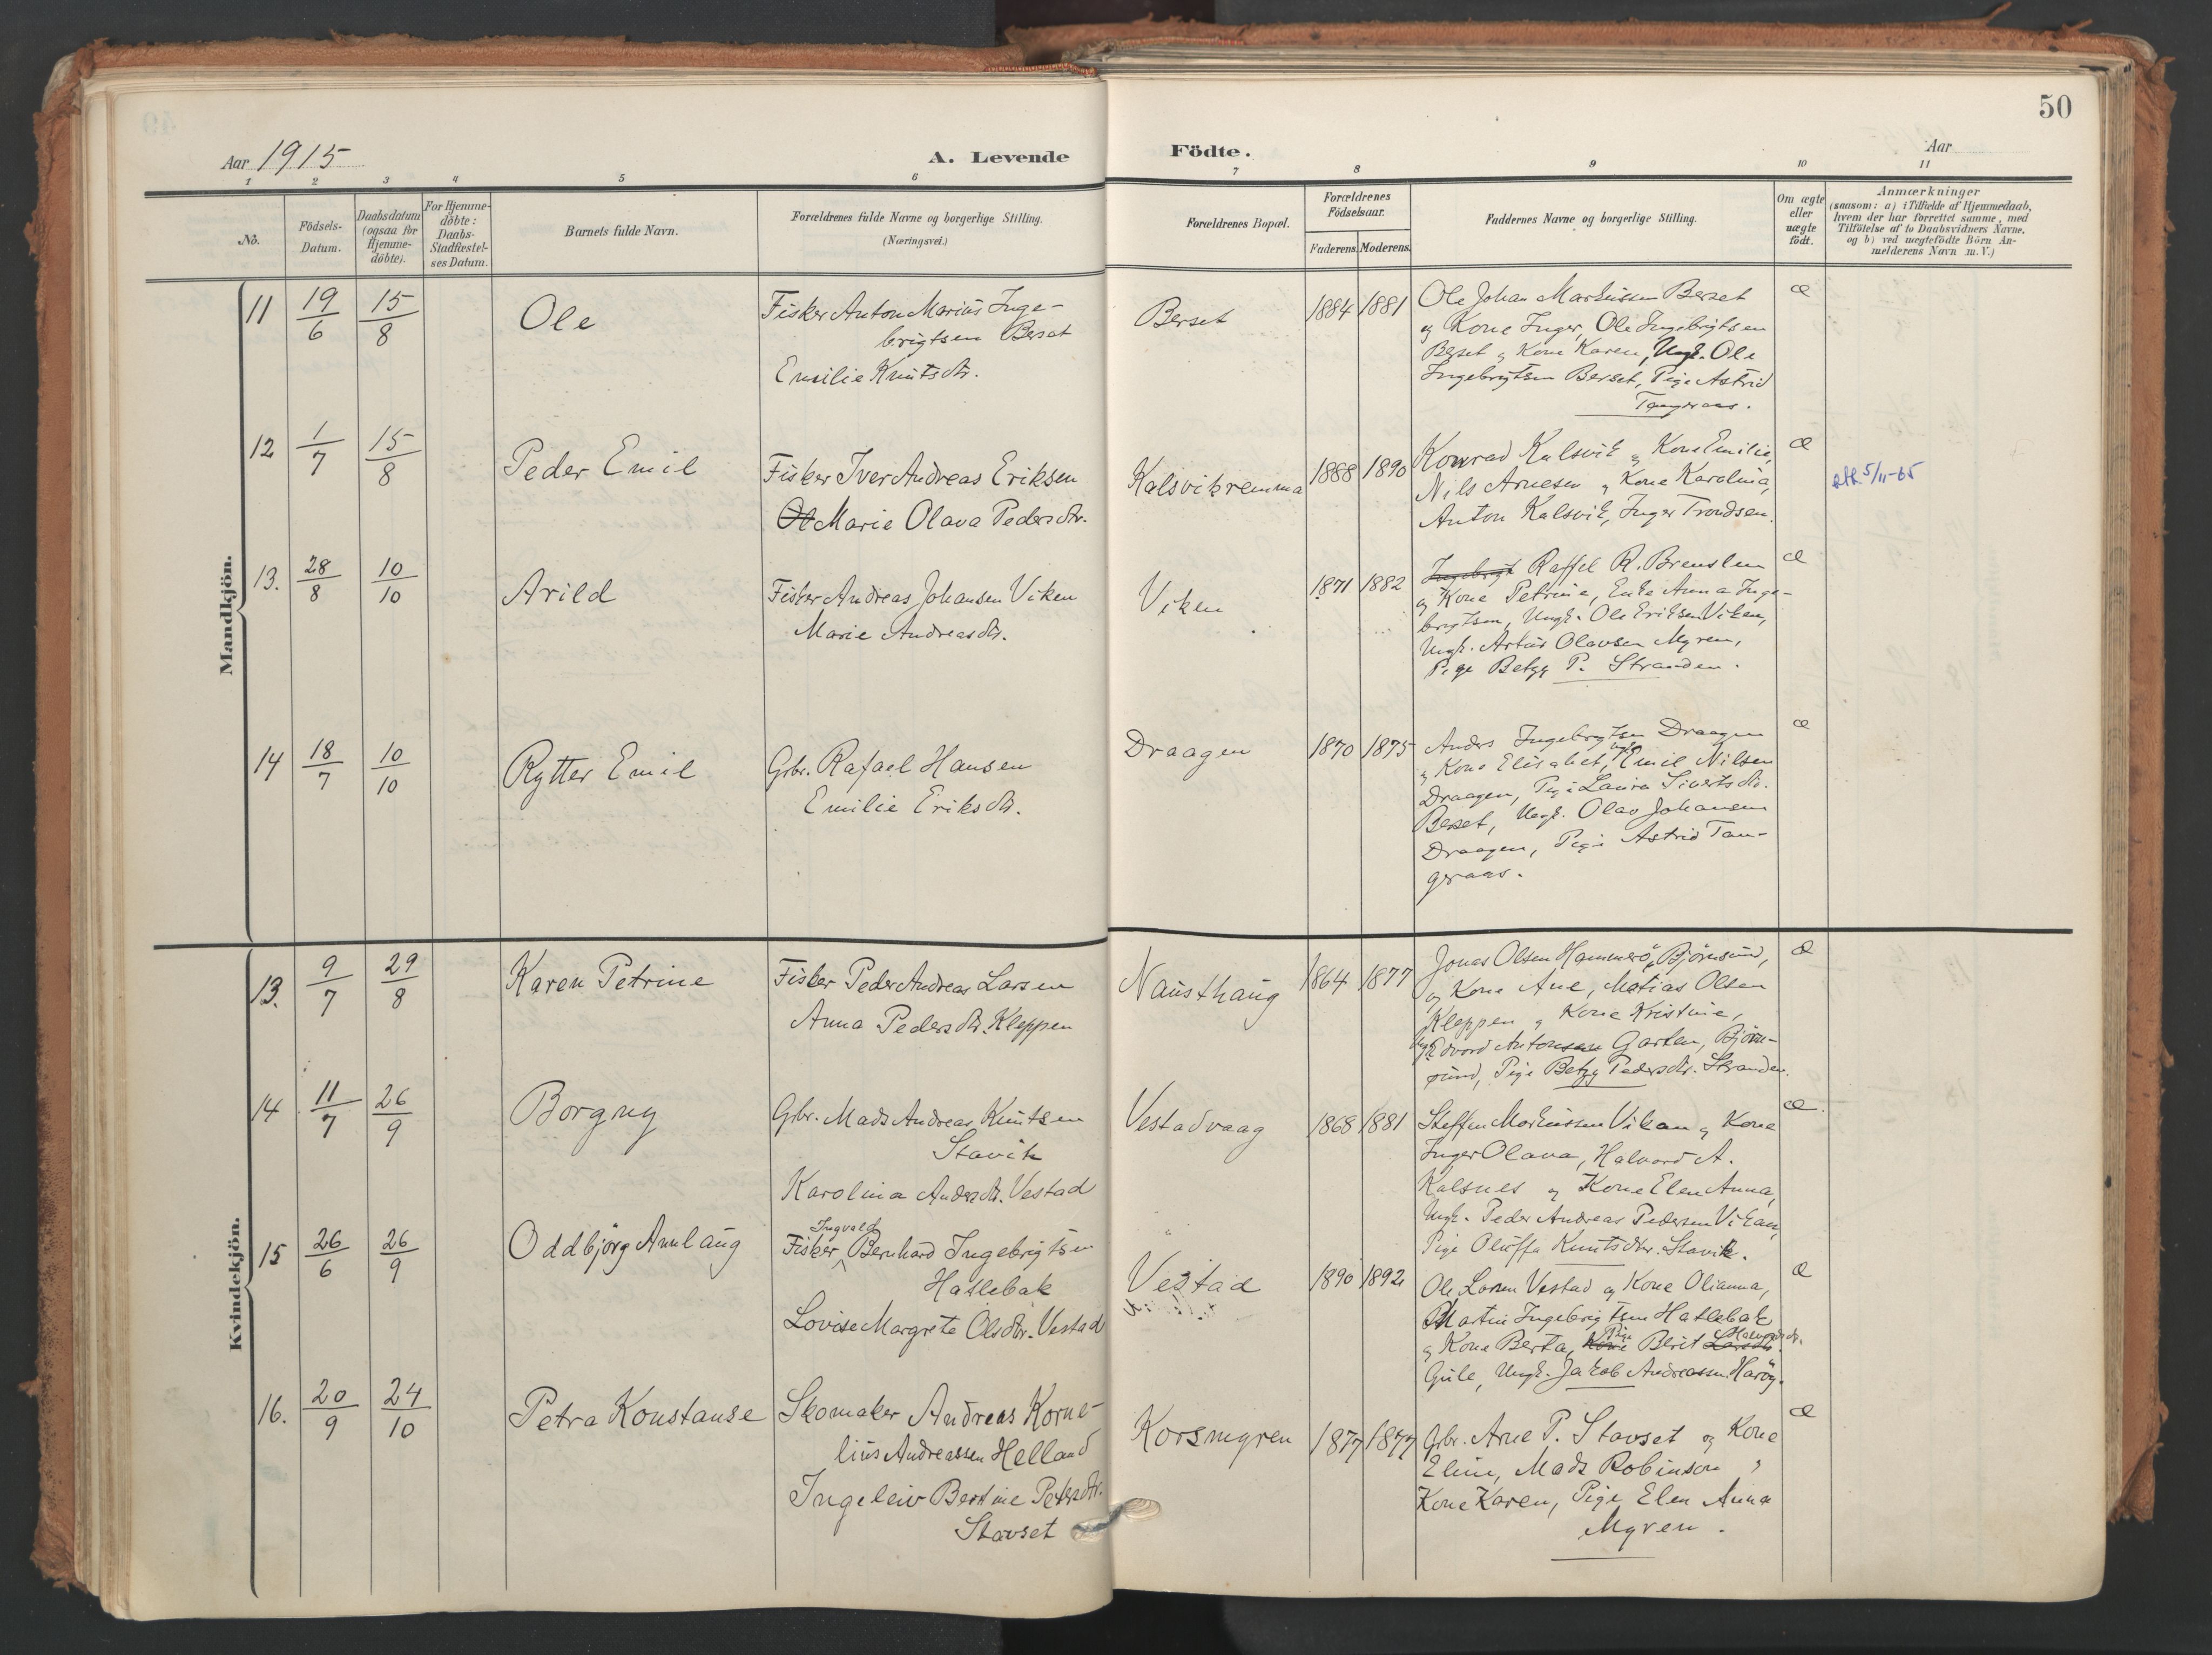 50
Aar 1915
A. Levende Födte.
Aar
1 2 3 4 5 6 7 8 9 10 11
No.
Födsels-
Datum.
Daabsdatum
(ogsaa for
Hjemme-
döbte).
For Hjemme-
döbte:
Daabs-
Stadfæstel-
ses Datum.
Barnets fulde Navn.
Forældrenes fulde Navne og borgerlige Stilling.
(Næringsvei.)
Forældrenes Bopæl.
Forældrenes
Födselsaar.
Faderens. Moderens.
Faddernes Navne og borgerlige Stilling.
Om ægte
eller
uægte
födt.
Anmærkninger
(saasom: a) i Tilfælde af Hjemmedaab,
hvem der har forrettet samme, med
Tilföielse af to Daabsvidners Navne,
og b) ved uægtefödte Börn An-
melderens Navn m. V.)
Mandkjön.
11 19/6 15/8 Ole
Fisker Anton Marius Inge-
brigtsen Berset
Emilie Knutsdtr.
Berset 1884 1881
Ole Johan Markussen Berset
og Kone Inger, Ole Ingebrigtsen
Berset og Kone Karen, Ungk. Ole
Ingebrigtsen Berset, Pige Astrid
Tangeraas.
æ
12 1/7 15/8 Peder Emil
Fisker Iver Andreas Eriksen
Ol Marie Olava Pedersdtr.
Kalsvikremma 1888 1890
Konrad Kalsvik og Kone Emilie,
Nils Arnesen og Kone Karolina,
Anton Kalsvik, Inger Trondsen.
æ
5/11-65
13. 28/8 10/10 Arild
Fisker Andreas Johansen Viken
Marie Andreasdtr.
Viken 1871 1882
Ingebrigt Raffel R. Breuslen
og Kone Petrine, Enke Anna Inge-
brigtsen, Ungk. Ole Eriksen Viken,
Ungk. Artur Olavsen Myren,
Pige Betzy P. Stranden.
æ
14 18/7 10/10 Rytter Emil
Gbr. Rafael Hansen
Emilie Eriksdtr.
Draagen 1870 1875
Anders Ingebrigtsen Draagen
og Kone Elisabet, Ungk. Emil Nilsen
Draagen, Pige Laura Sivertsdtr.
Berset, Ungk. Olav Johansen
Draagen, Pige Astrid Tan-
geraas.
æ
Kvindekjön.
13. 9/7 29/8 Karen Petrine
Fisker Peder Andreas Larsen
Anna Pedersdtr. Kleppen
Nausthaug 1864 1877
Jonas Olsen Hammerö, Björnsund,
og Kone Ane, Matias Olsen
Kleppen og Kone Kristine,
Ungk. Edvard Antonsen Garten, Björn-
sund, Pige Betzy Pedersdtr. Stranden.
æ
14 11/7 26/9 Borgny
Gbr. Mads Andreas Knutsen
Stavik
Karolina Andersdtr. Vestad
Vestadvaag 1868 1881
Steffen Markussen Vikan og Kone
Inger Olava, Halvard A.
Kalsnes og Kone Elen Anna,
Ungk. Peder Andreas Pedersen Vikan,
Pige Oluffa Knutsdtr. Stavik.
æ.
15 26/6 26/9 Oddbjörg Annlaug
Ingvald
Fisker Bernhard Ingebrigtsen
Haslebak
Lovise Margrete Olsdtr. Vestad
Vestad 1890 1892
Ole Larsen Vestad og Kone Olianna,
Martin Ingebrigtsen Haslebak
og Kone Berta, Kone Pige Berit Larsdtr. Halvorsdtr.
Gule, Ungk. Jakob Andreassen Haröy.
æ
16. 20/9 24/10 Petra Konstanse
Skomaker Andreas Korne-
lius Andreassen Helland
Ingeleiv Bertine Petersdtr.
Stavset
Korsmyren 1877 1877
Gbr. Arne P. Stavset og Kone
Elin, Mads Robinson og
Kone Karen, Pige Elen Anna
Myren.
æ